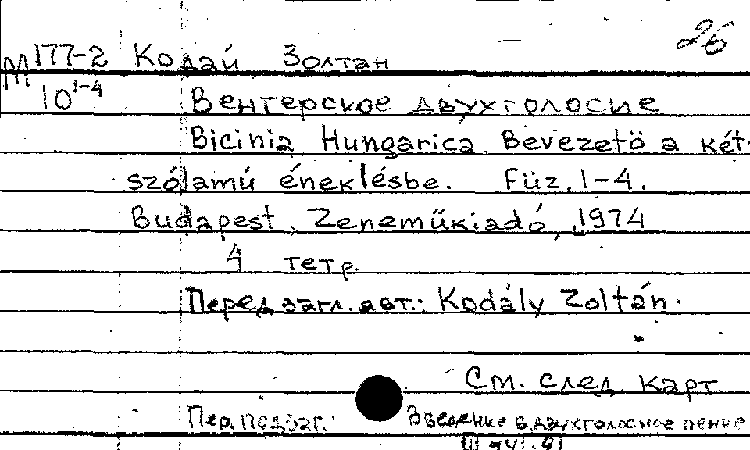 26
М 177-2 Кодай Золтан
10 1-4 Венгерское двухголосие
Bicinia Hungarica Bevezetö a két-
szólamú éneklésbe. Füz. 1-4.
Budapest, Zeneműkiadó, 1974
4 тетр.
Перед загл. авт.: Kodály Zoltán.
См. след карт
Пер. подзаг.: Введение в двухголосное пение